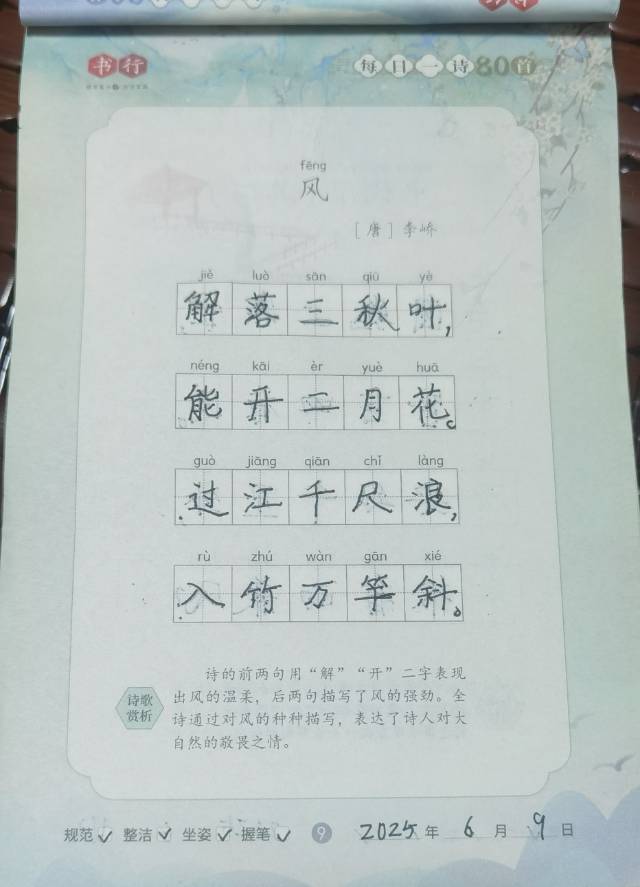 书行
每日一诗80首
fēng
风
[唐] 李峤
jiě luò sān qiū yè
解落三秋叶，
néng kāi èr yuè huā
能开二月花。
guò jiāng qiān chǐ làng
过江千尺浪，
rù zhú wàn gān xié
入竹万竿斜。
诗的前两句用“解”“开”二字表现
诗歌 出风的温柔，后两句描写了风的强劲。全
赏析 诗通过对风的种种描写，表达了诗人对大
自然的敬畏之情。
规范✓ 整洁✓ 坐姿✓ 握笔✓ 9 2025年 6月 9日